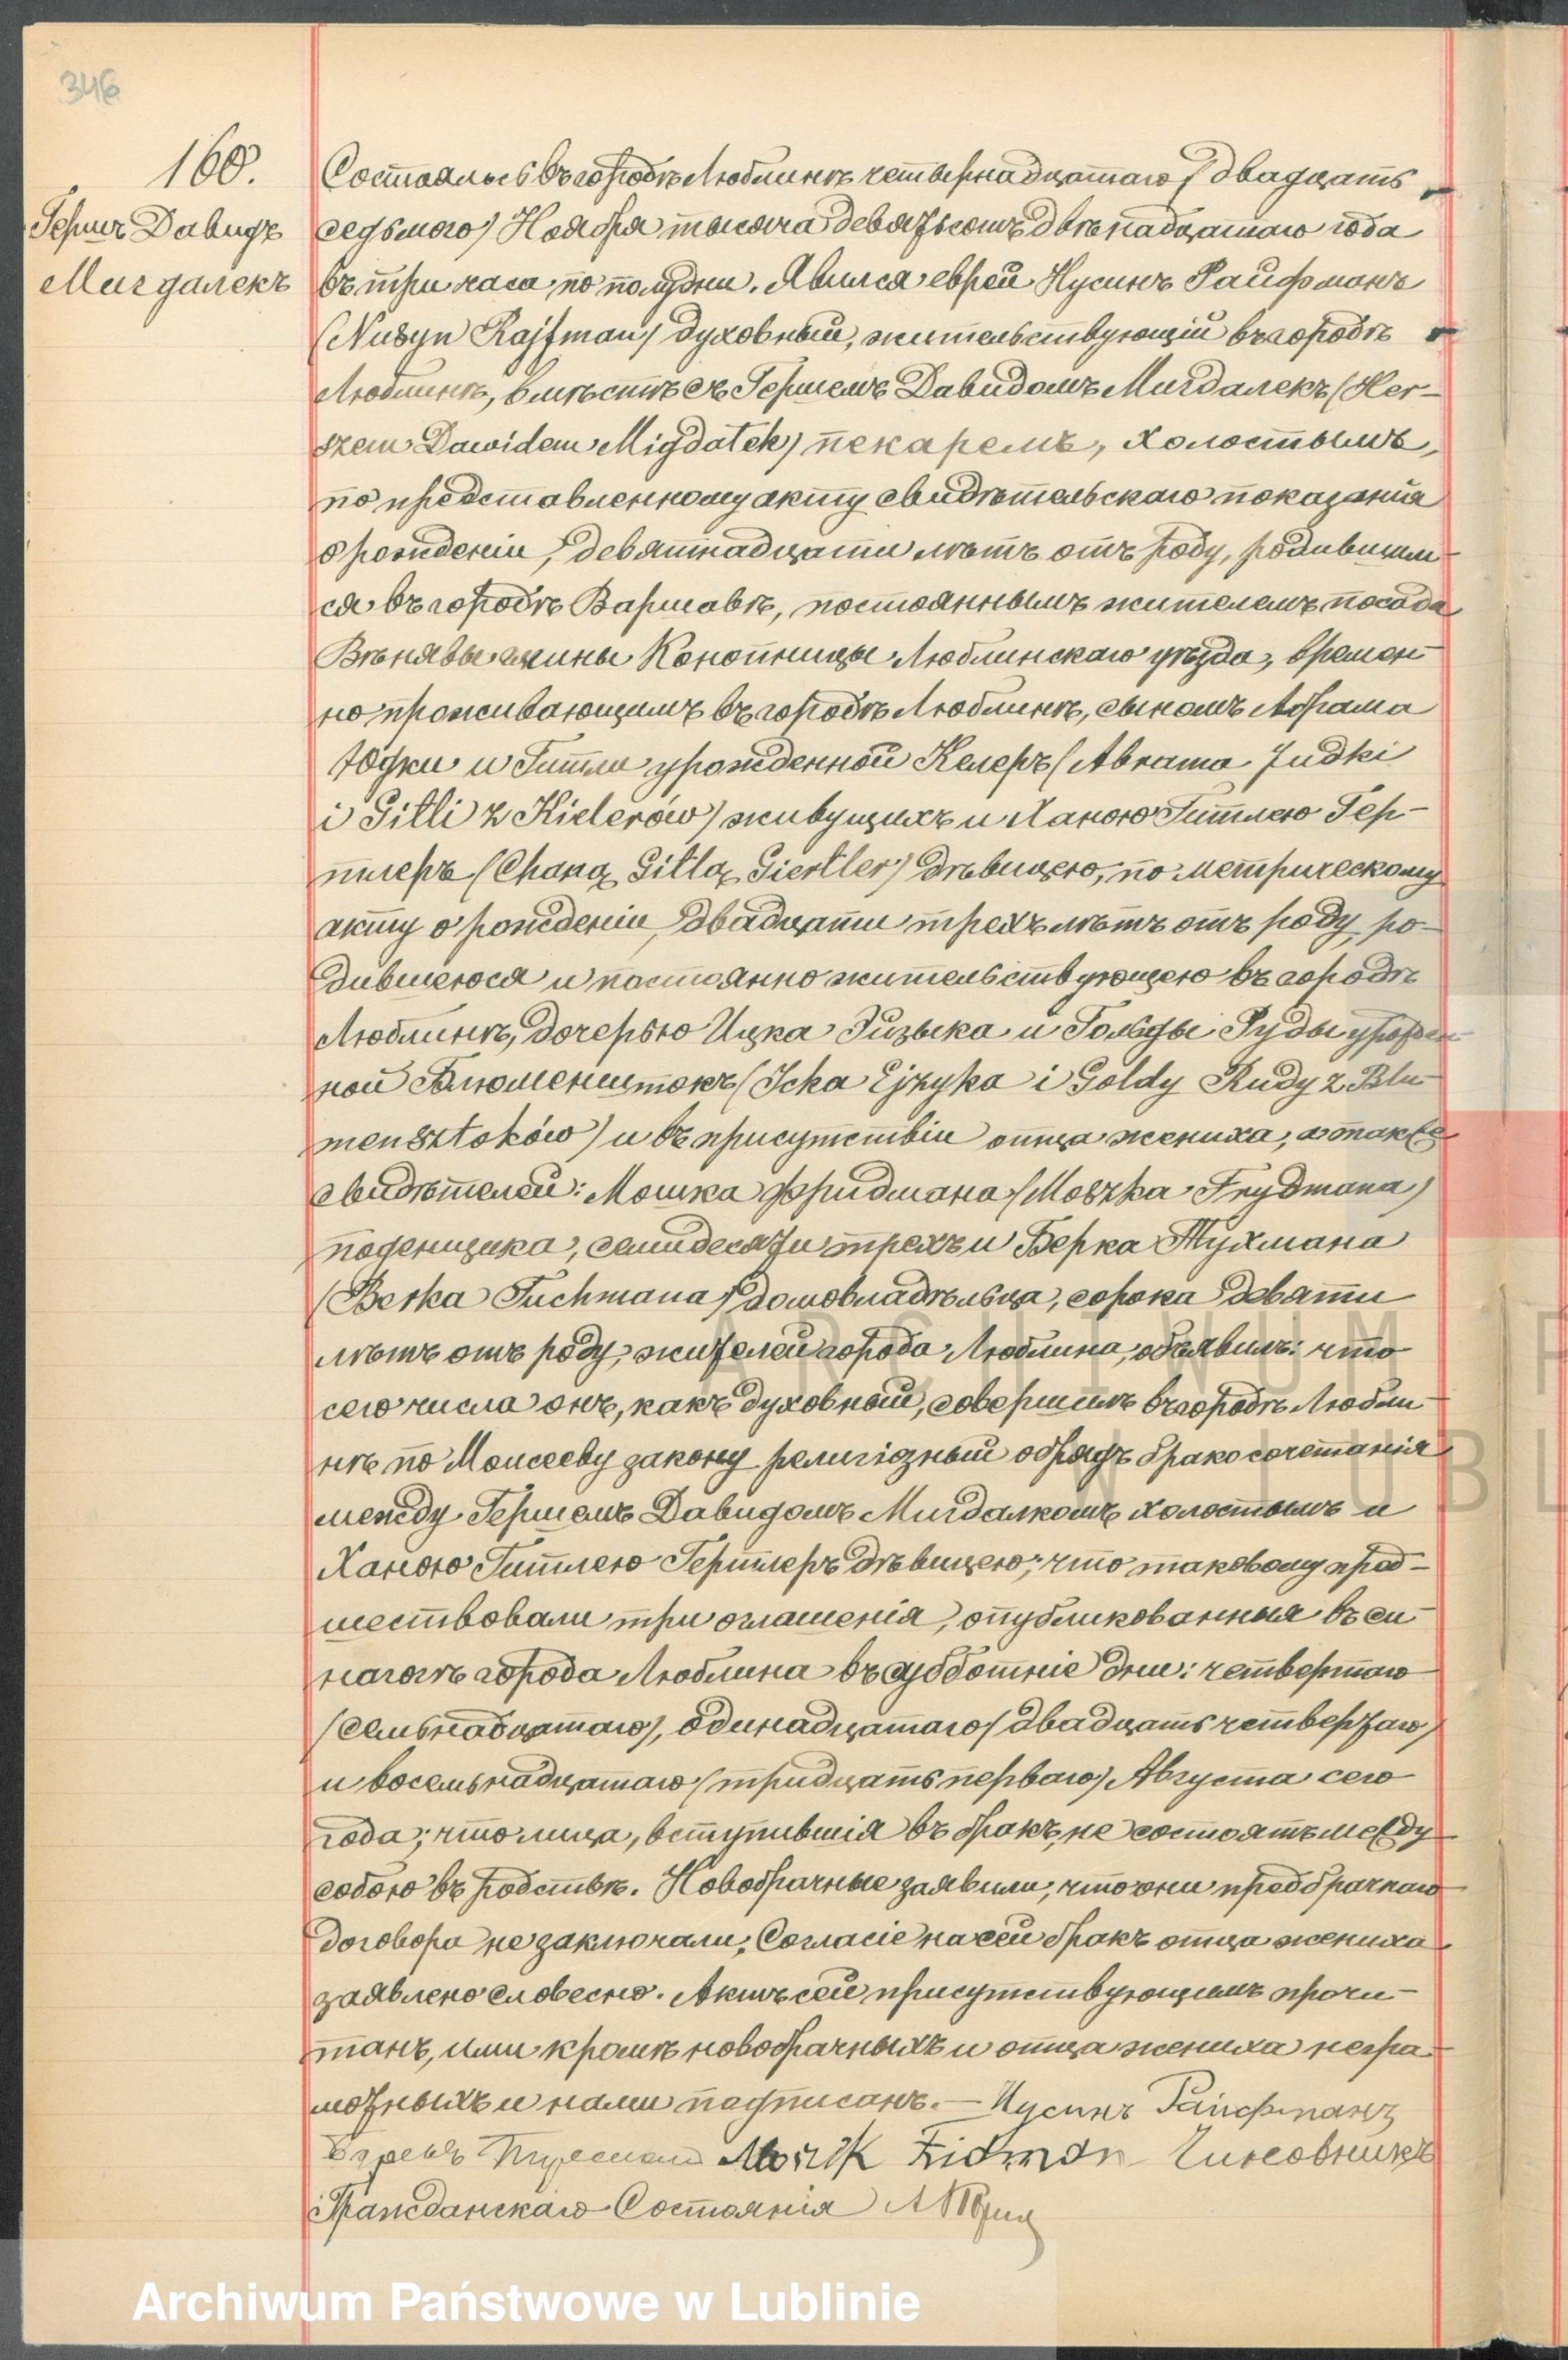 346
160.
Гершъ Давидъ
Мигдалекъ
Состоялось въ городѣ Люблинѣ четырнадцатаго / двадцать
седьмого) Ноября тысяча девятьсотъ двѣнадцатаго года
въ три часа по полудни. Явился еврей Нусинъ Райфманъ
(Nusyn Rajfman) духовный, жительствующій въ городѣ
Люблинѣ, вмѣстѣ съ Гершемъ Давидомъ Мигдалекъ (Her-
szem Dawidem Migdałek) пекаремъ, холостымъ,
по представленному акту свидѣтельскаго показанія
о рожденіи, девятнадцати лѣтъ отъ роду, родившим-
ся въ городѣ Варшавѣ, постояннымъ жителемъ посада
Вѣнявы гмины Конопницы Люблинскаго уѣзда, времен-
но проживающимъ въ городѣ Люблинѣ, сыномъ Абрама
Юдки и Гитли урожденной Келеръ (Abrama Judki
i Gitli z Kielerów) живущихъ и Ханою Гитлею Гер-
тлеръ (Chaną Gitlą Giertler) дѣвицею, по метрическому
акту о рожденіи, двадцати трехъ лѣтъ отъ роду, ро-
дившеюся и постоянно жительствующею въ городѣ
Люблинѣ, дочерью Ицка Эйзыка и Гольды Руды урожден-
ной Блюменштокъ (Icka Ejzyka i Goldy Rudy z Blu-
mensztoków) и въ присутствіи отца жениха, а также
свидѣтелей: Мошка Фридмана (Moszka Frydmana)
поденщика, семидесяти трехъ и Берка Тухмана
(Berka Tuchmana) домовладѣльца, сорока девяти
лѣтъ отъ роду, жителей города Люблина, объявилъ: что
сего числа онъ, какъ духовный, совершилъ въ городѣ Любли-
нѣ по Моисееву закону религіозный обрядъ бракосочетанія
между Гершемъ Давидомъ Мигдалкомъ холостымъ и
Ханою Гитлею Гертлеръ дѣвицею; что таковому пред-
шествовали три оглашенія, опубликованныя въ си-
нагогѣ города Люблина въ субботніе дни: четвертаго
(семьнадцатаго), одинадцатаго (двадцать четвертаго)
и восемьнадцатаго (тридцать перваго) Августа сего
года; что лица, вступившія въ бракъ, не состоятъ между
собою въ родствѣ. Новобрачные заявили, что они предбрачнаго
договора не заключали; Согласіе на сей бракъ отца жениха
заявлено словесно. Актъ сей присутствующимъ прочи-
танъ, ими кромѣ новобрачныхъ и отца жениха негра-
мотныхъ и нами подписанъ. — Нусинъ Райфманъ
Moszk Fridman Чиновникъ
Гражданскаго Состоянія
ARCHIWUM P
W LUBL
Archiwum Państwowe w Lublinie